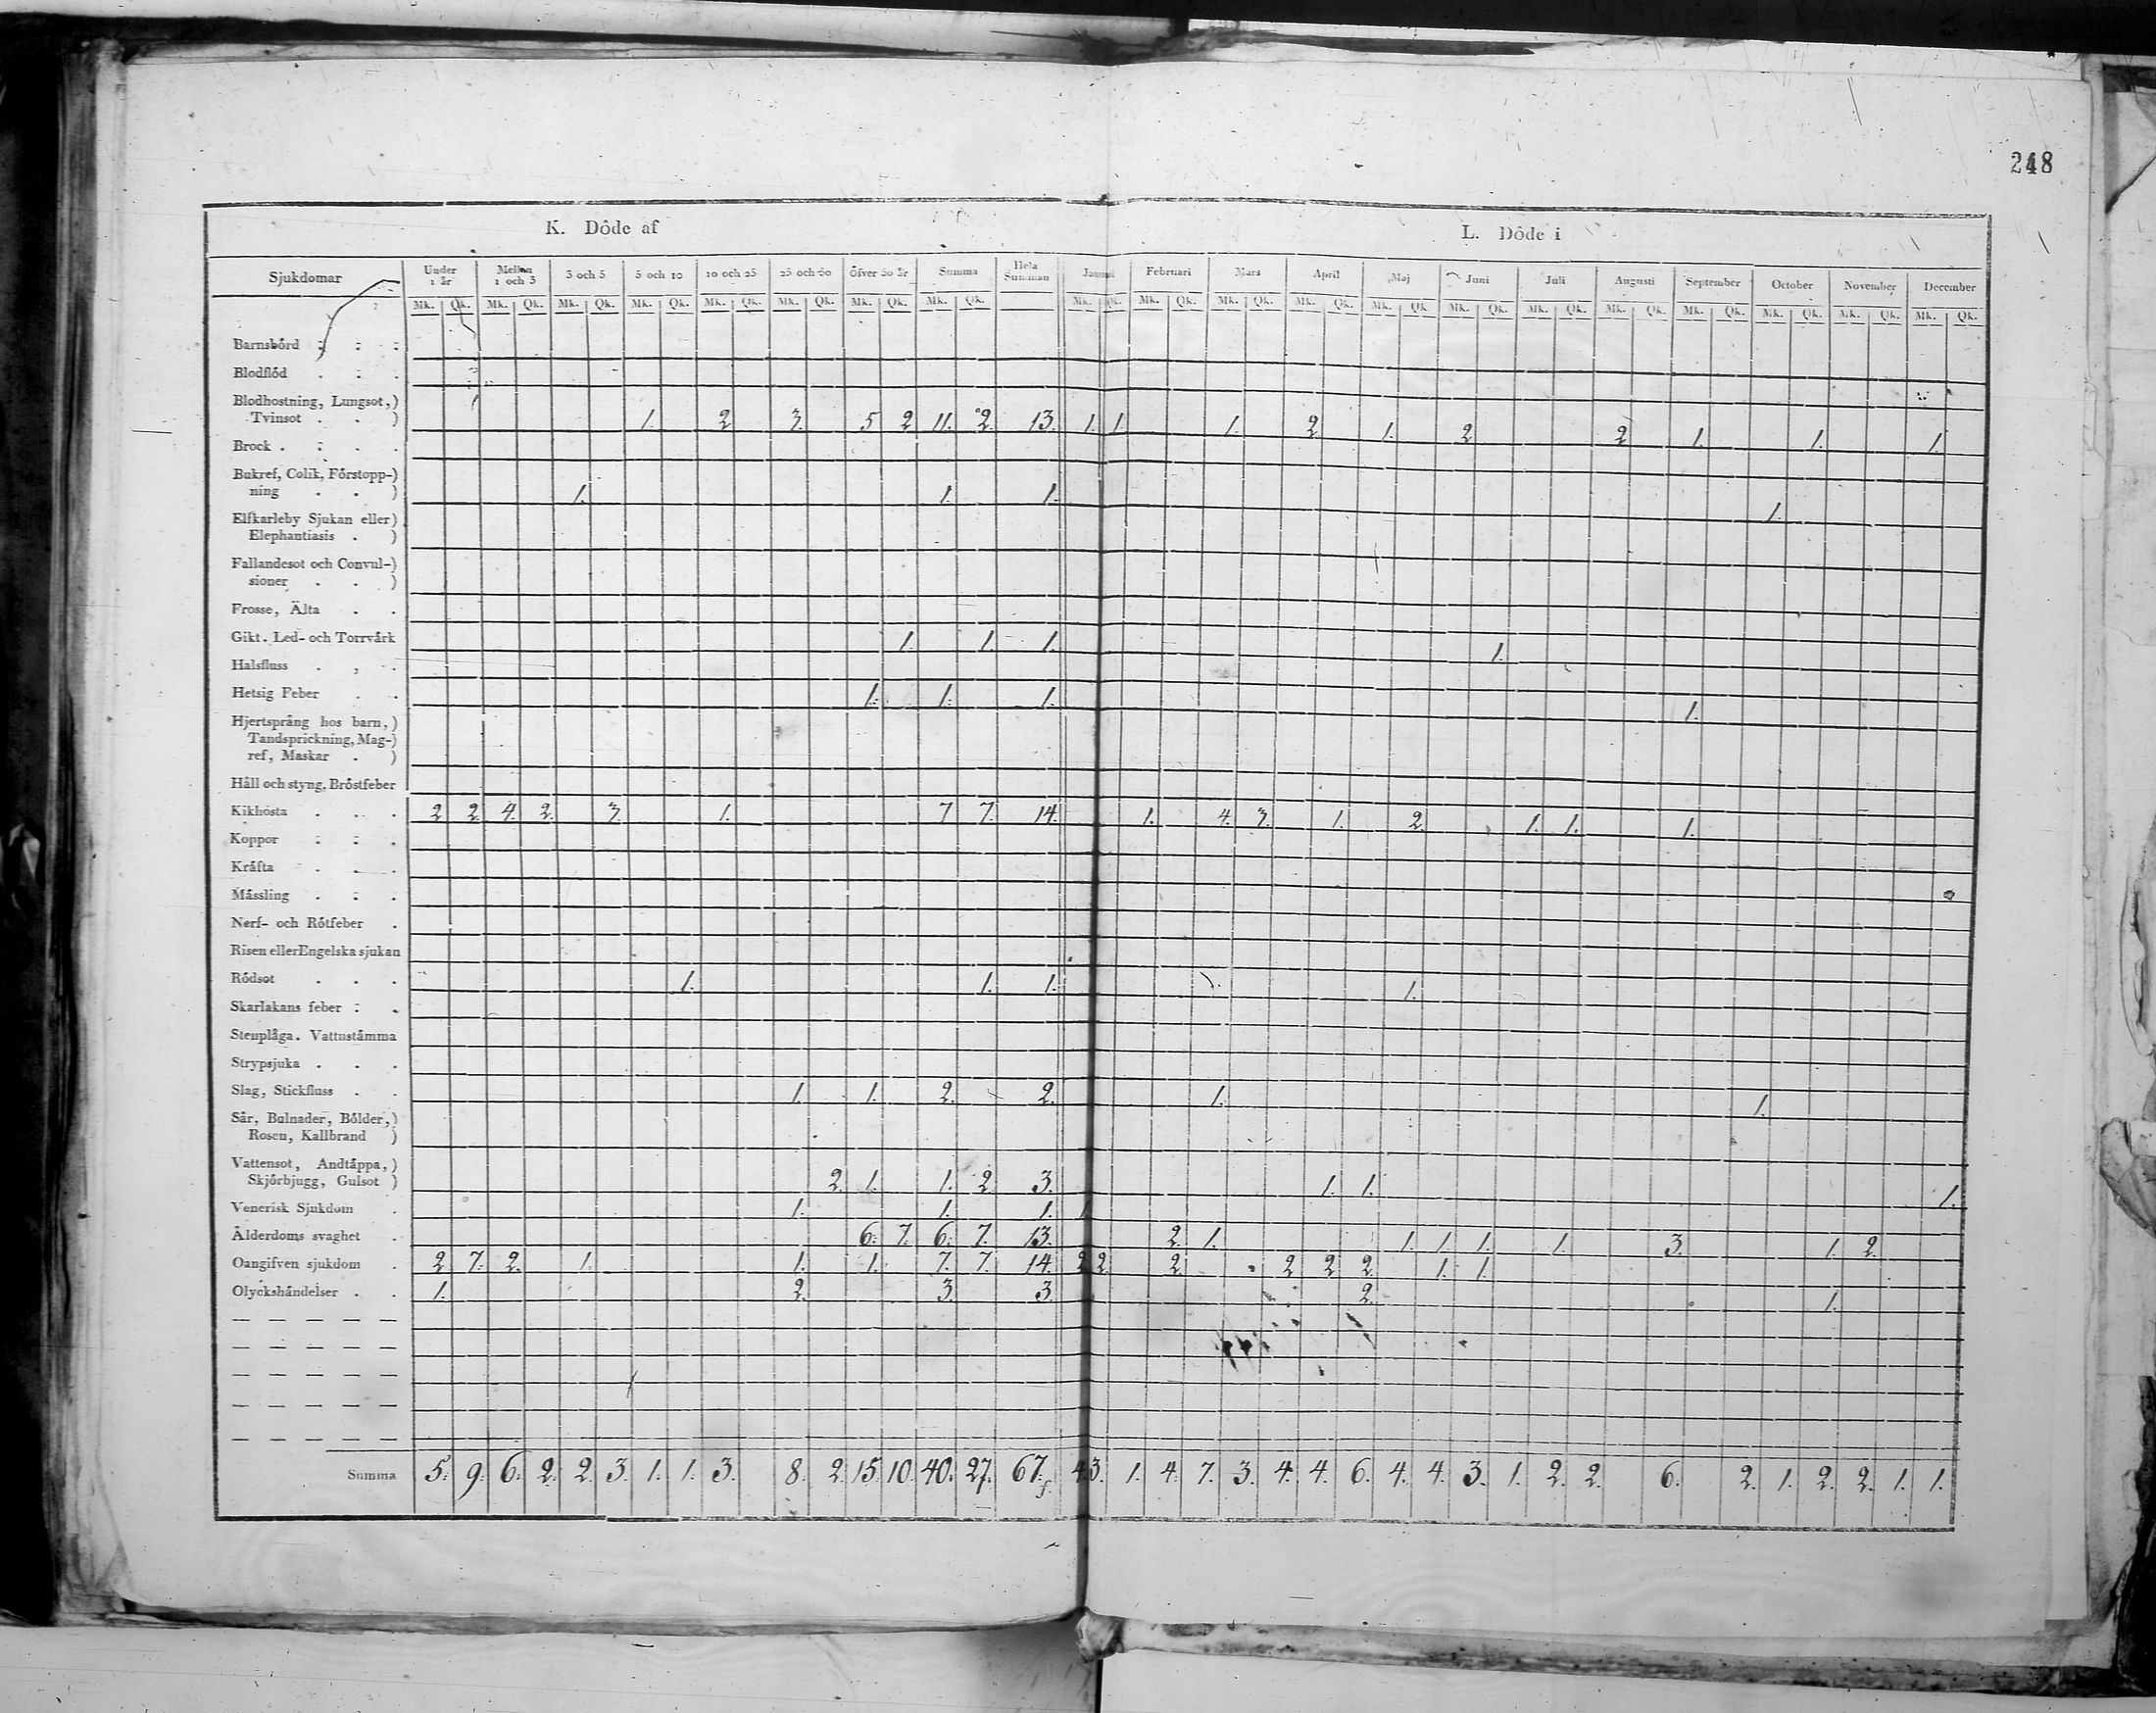 248
K. Döde af L. Döde i
Sjukdomar Under 1 år Mellan 1 och 3 3 och 5 5 och 10 10 och 25 25 och 50 Öfver 50 år Summa Hela Summan Januari Februari Mars April Maj Juni Juli Augusti September October November December
Mk. Qk. Mk. Qk. Mk. Qk. Mk. Qk. Mk. Qk. Mk. Qk. Mk. Qk. Mk. Qk. Mk. Qk. Mk. Qk. Mk. Qk. Mk. Qk. Mk. Qk. Mk. Qk. Mk. Qk. Mk. Qk. Mk. Qk. Mk. Qk. Mk. Qk. Mk. Qk.
Barnsbörd
Blodflöd
Blodhostning, Lungsot,)
Tvinsot . . ) 1. 2 3. 5 2 11. 2. 13. 1. 1. 1. 2 1. 2 2 1. 1. 1.
Brock
Bukref, Colik, Förstopp-)
ning . . ) 1. 1. 1. 1.
Elfkarleby Sjukan eller)
Elephantiasis . )
Fallandesot och Convul-)
sioner . . )
Frosse, Älta
Gikt. Led- och Torrvärk 1. 1. 1. 1.
Halsfluss
Hetsig Feber 1. 1. 1. 1.
Hjertsprång hos barn,)
Tandsprickning, Mag-)
ref, Maskar . )
Håll och styng, Bröstfeber
Kikhosta 2 2. 4. 2. 3. 1. 7 7. 14. 1. 4. 3. 1. 2. 1. 1. 1.
Koppor
Kräfta
Mässling
Nerf- och Rötfeber
Risen eller Engelska sjukan
Rödsot 1. 1. 1. 1.
Skarlakans feber
Stenplåga. Vattustämma
Strypsjuka
Slag, Stickfluss 1. 1. 2. 2. 1. 1.
Sår, Bulnader, Bölder,)
Rosen, Kallbrand )
Vattensot, Andtäppa,)
Skjörbjugg, Gulsot ) 2. 1. 1. 2. 3. 1. 1. 1.
Venerisk Sjukdom 1. 1. 1. 1
Ålderdoms svaghet 6. 7. 6. 7. 13. 2. 1. 1. 1. 1. 1. 3. 1. 2.
Oangifven sjukdom 2. 7. 2. 1. 1. 1. 7. 7. 14. 2 2. 2. 2 2 2. 1. 1.
Olyckshändelser 1. 2. 3. 3. 2. 1.
Summa 5. 9. 6. 2. 2. 3. 1. 1. 3. 8. 2. 15. 10. 40. 27. 67. 4. 3. 1. 4. 7. 3. 4. 4. 6. 4. 4. 3. 1. 2. 2. 6. 2. 1. 2. 2. 1. 1.